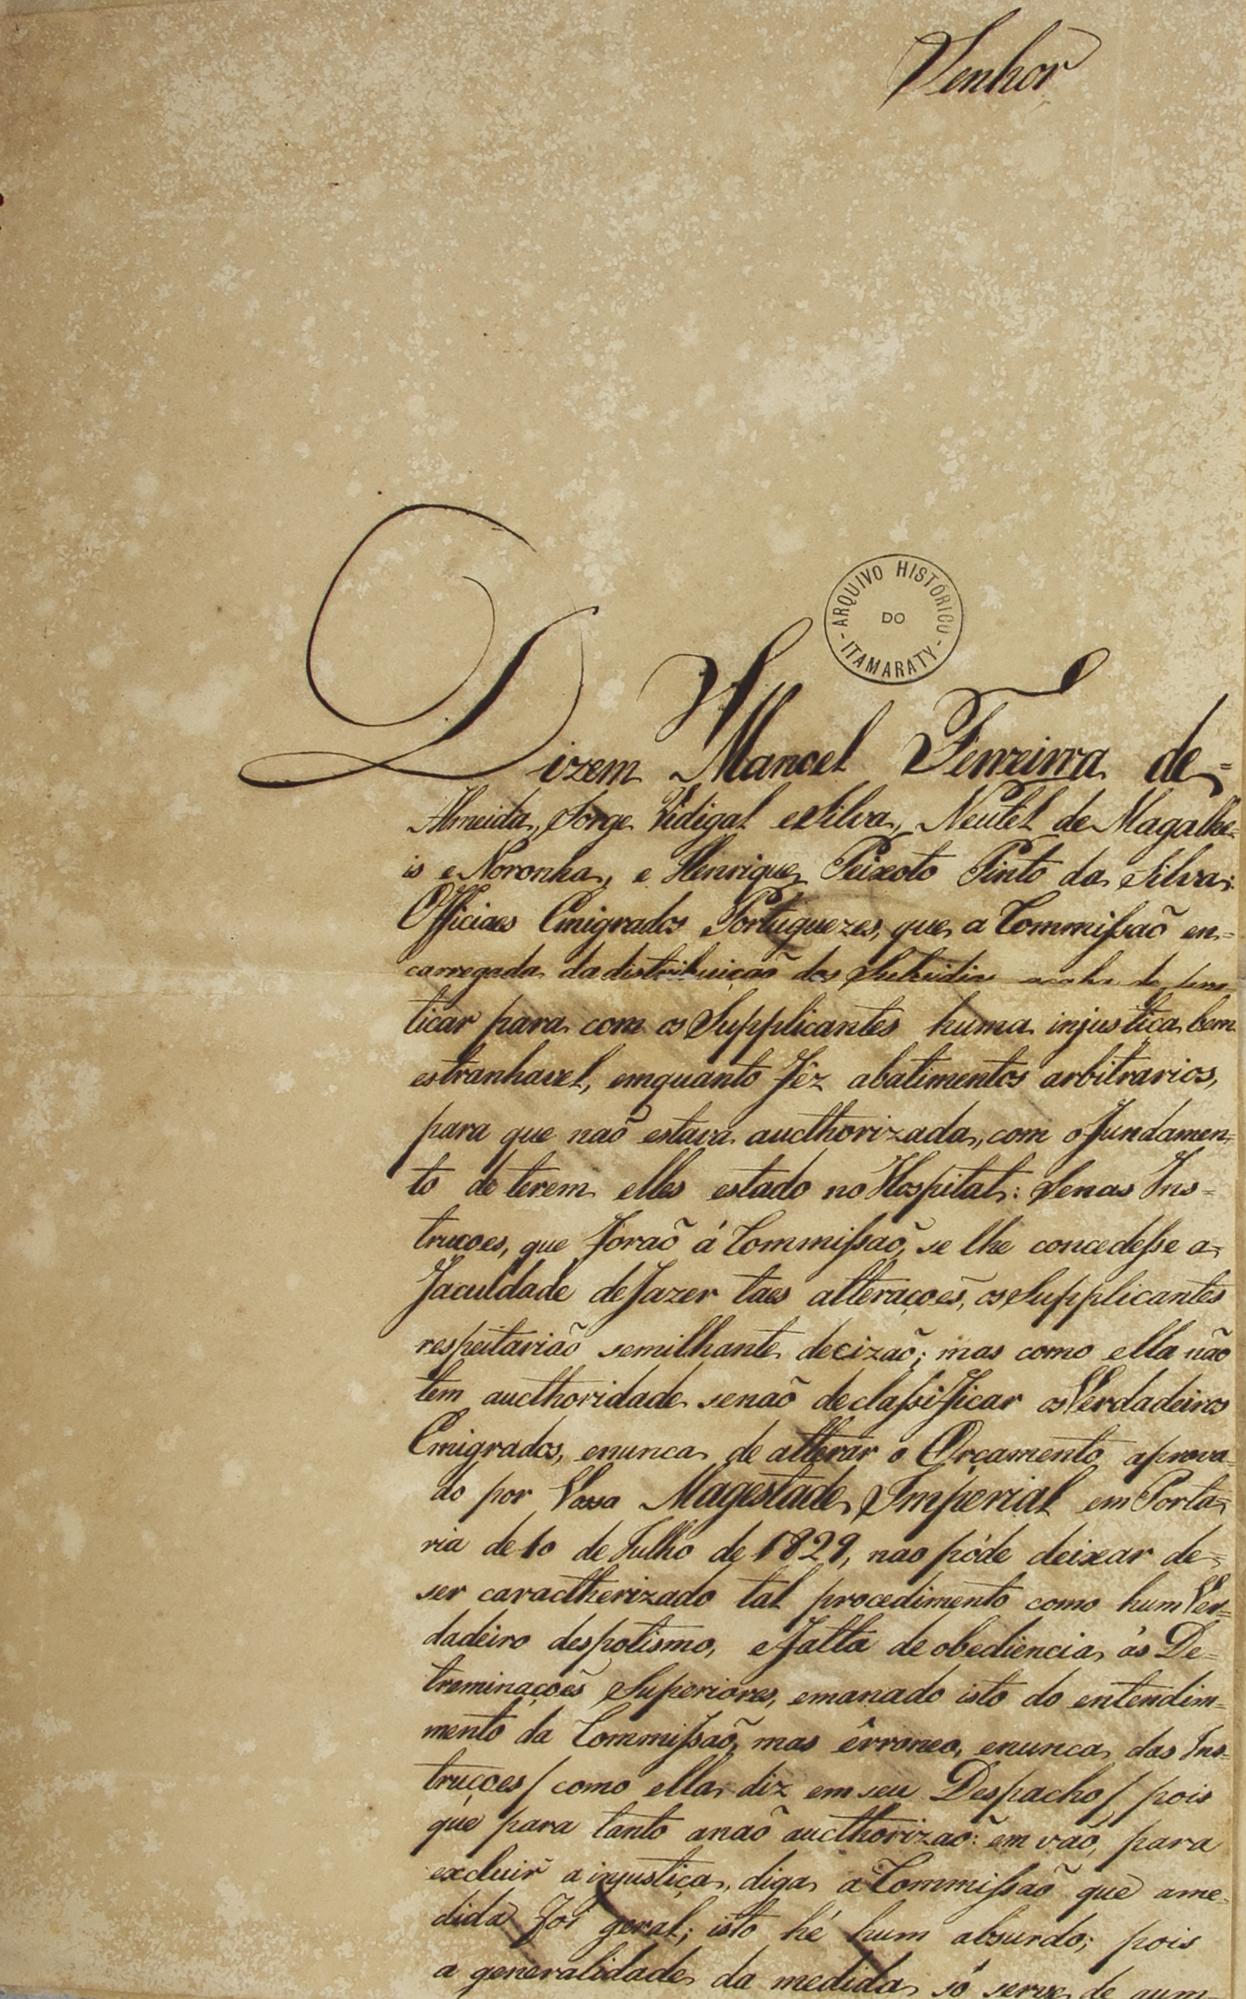 Senhor
ARQUIVO HISTÓRICO
DO
- ITAMARATY -
Dizem Manoel Ferreira de=
Almeida, Jorge Vidigal e Silva, Neutel de Magalhe-
is e Noronha, e Henrique Peixoto Pinto da Silva;
Officiaes Emigrados Portuguezes, que a Commissaõ en=
carregada da distribuiçaõ dos Subsidios acaba de pra=
ticar para com os Supplicantes huma injustiça bem
estranhavel, emquanto fêz abatimentos arbitrarios,
para que naõ estava aucthorizada, com o fundamen=
to de terem elles estado no Hospital: Se nas Ins=
truçoes, que foraõ á Commissaõ, se lhe concedesse a
faculdade de fazer taes alteraçoẽs, os Supplicantes
respeitariaõ semilhante decizaõ; mas como ella não
tem aucthoridade senaõ de classificar os Verdadeiros
Emigrados, e nunca de alterar o Orçamento aprova-
do por Vossa Magestade Imperial em Porta=
ria de 10 de Julho de 1829, nao póde deixar de
ser caractherizado tal procedimento como hum Ver=
dadeiro despotismo, e falta de obediencia ás De=
treminaçoẽs Superiores, emanado isto do entendim=
mento da Commissaõ, mas êrroneo, e nunca das Ins=
truçoes/ como ella diz em seu Despacho/ pois
que para tanto a naõ aucthorizaõ: em vaõ, para
excluir a injustiça, diga a Commissaõ que a me-
dida foi geral; isto hé hum absurdo; pois
a generalidade da medida só serve de aum=